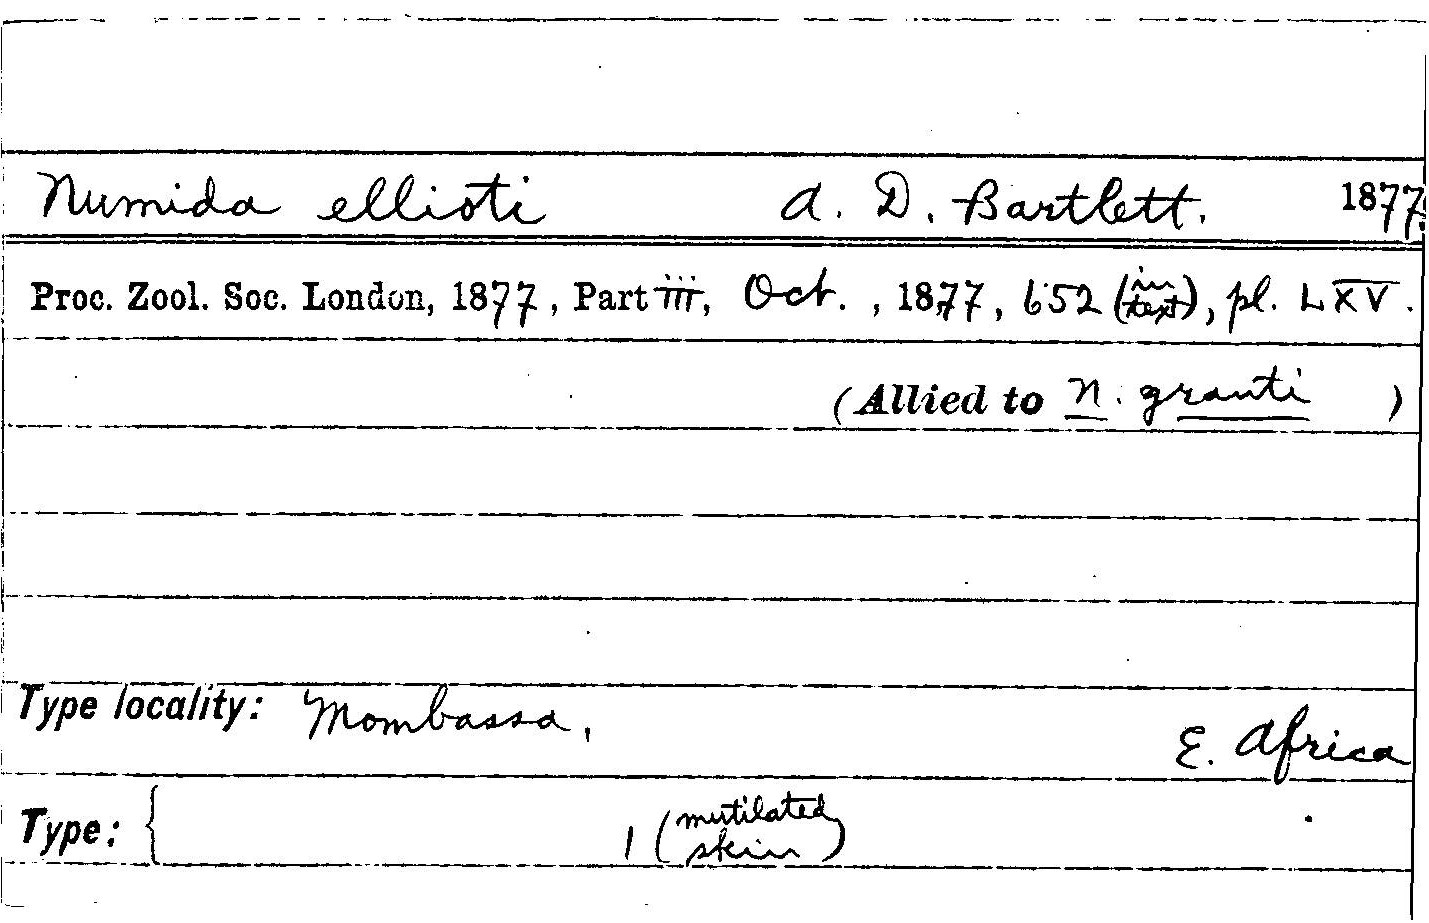 Numida ellioti A. D. Bartlett. 1877.
Proc. Zool. Soc. London, 1877, Part iii, Oct., 1877, 652 (in text), pl. LXV.
(Allied to N. granti )
Type locality: Mombassa, E. Africa
Type: { 1 (mutilated skin) .